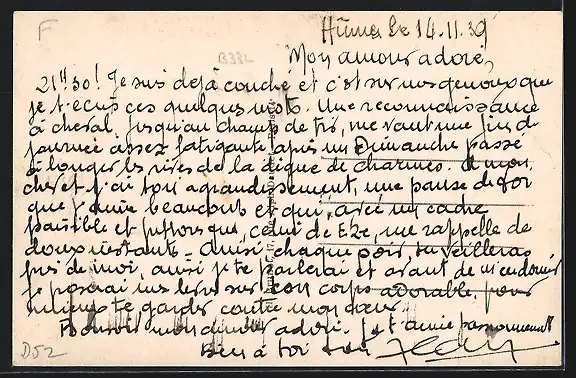 F
Hûmes le 14.11.39
B33L
Mon amour adoré,
21h30! Je suis déjà couché et c'est sur mes genoux que
je t'écris ces quelques mots. Une reconnaissance
à cheval, jusqu'au champ de tir, me vaut une fin de
journée assez fatigante après un Dimanche passé
à longer les rives de la digue de charmes.
que j'aime beaucoup et qui, avec un cadre
paisible et celui de Eze, me rappelle de
doux instants. Ainsi chaque soir, tu veilleras
près de moi, ainsi je te parlerai et avant de m'endormir
je poserai mes lèvres sur ton corps adorable, pour
mieux te garder contre mon cœur.
Bonsoir mon amour adoré. Je t'aime passionnément
Bien à toi ton Jean
D52